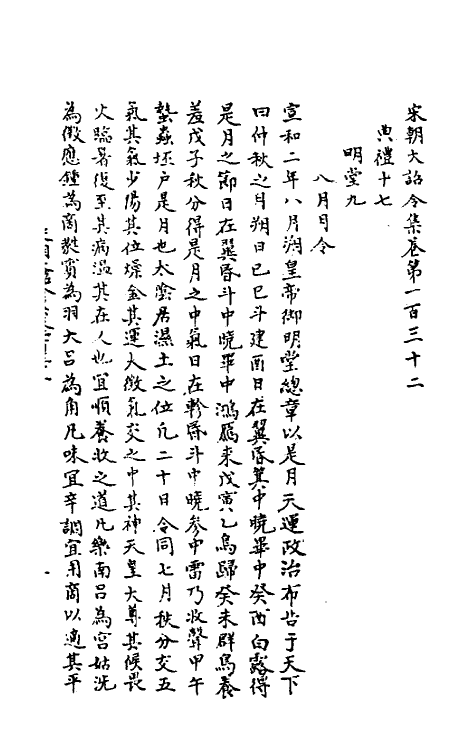 宋朝大詔令集卷第一百三十二
典禮十七
明堂九
八月月令
宣和二年八月朔皇帝御明堂總章以是月天運政治布告于天下
曰仲秋之月朔日己巳斗建酉日在翼昏箕中曉畢中癸酉白露得
是月之節日在翼昏斗中曉畢中鴻鴈來戊寅乙鳥歸癸未群鳥養
羞戊子秋分得是月之中氣日在軫昏斗中曉參中雷乃收聲甲午
蟄蟲坯戶是月也太陰居濕土之位凡二十日令同七月秋分交五
氣其氣少陽其位燥金其運大徵氣交之中其神天皇大尊其候畏
火臨暑復至其病溫其在人也宜順養收之道凡樂南呂為宮姑洗
為徵應鍾為商蕤賓為羽大呂為角凡味宜辛調宜用商以適其平